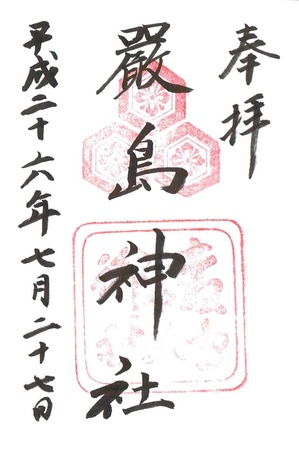 奉拝
嚴島神社
平成二十六年七月二十七日